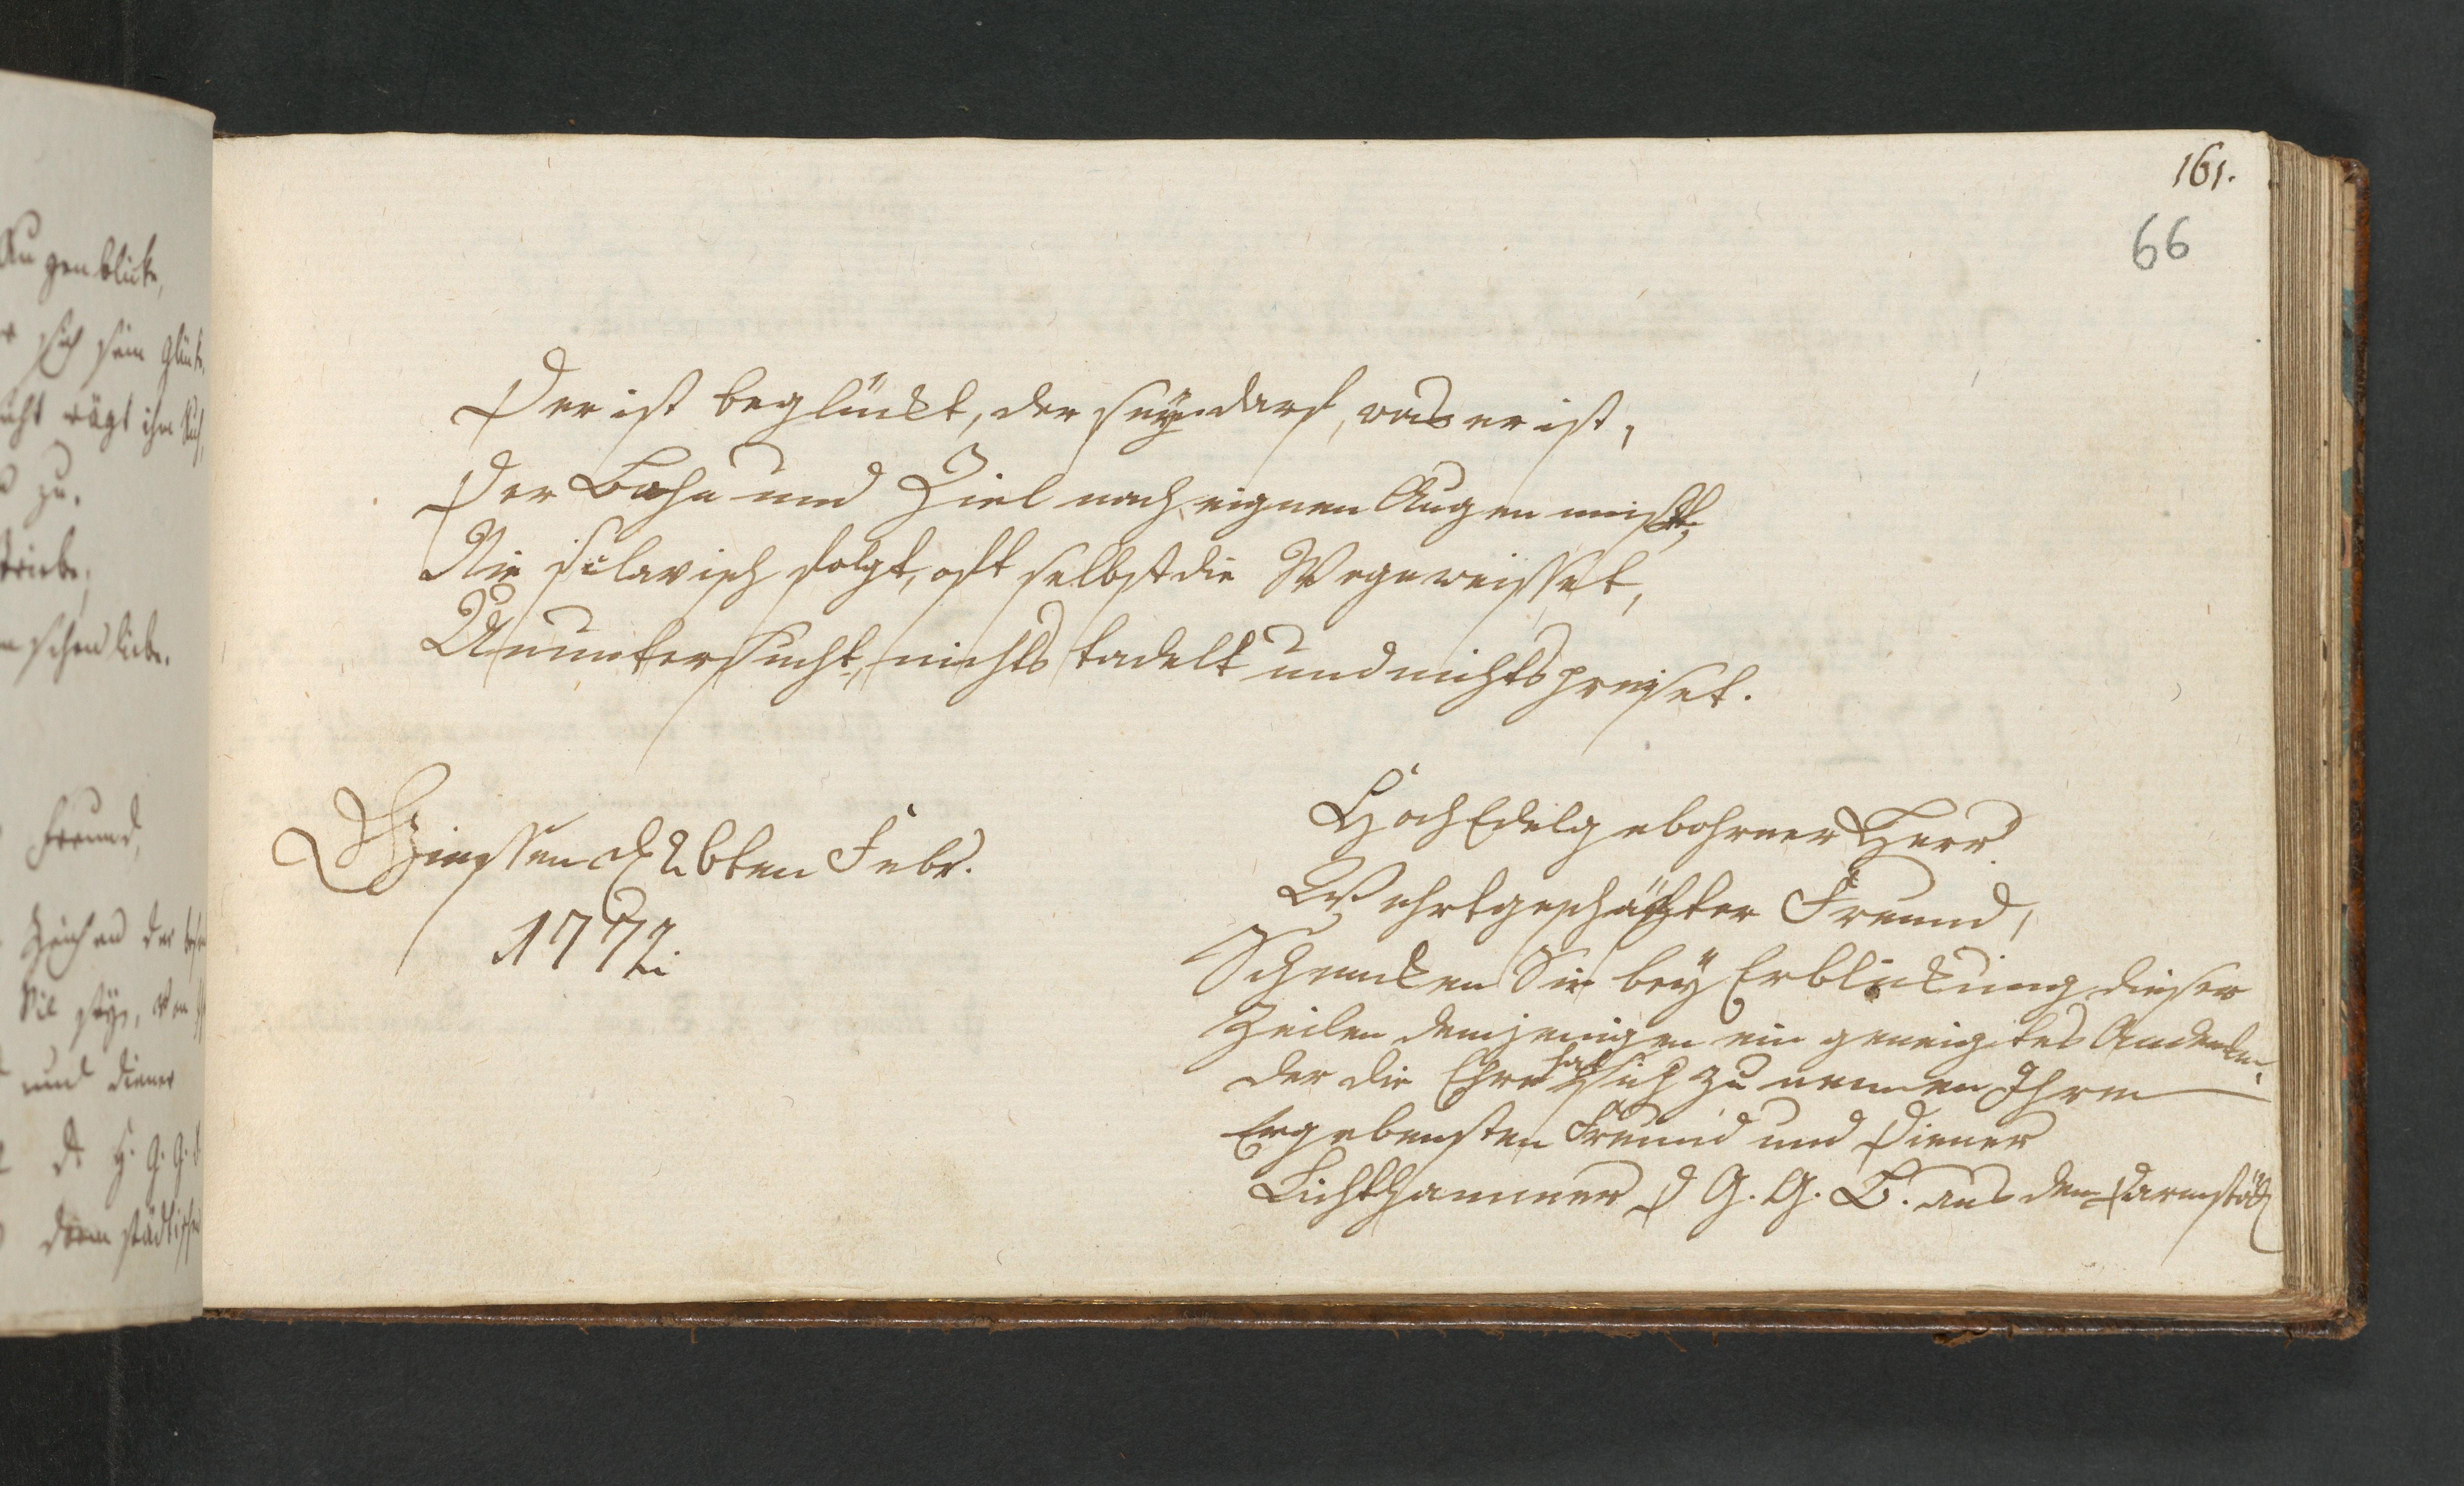 Augenblicke,
sich sein Glücke.
zu.
Triebe;
schen liebe.
Freund,
Zeichen der
Sie
und Diener
städtischen
161.
66
Der ist beglückt, der seyn darf, was er ist,
Der Bahn und Ziel nach eignen Augen mißt,
Nie sclavisch folgt, oft selbst die Wege weisset,
Ununtersucht, nichts tadelt und nichts preiset.
Giessen d 26ten Febr.
1772.
HochEdelgebohrner Herr
Wehrtgeschäzter Freund,
Schencken Sie bey Erblickung dieser
Zeilen demjenigen ein geneigtes Andencken,
der die Ehre hat sich zu nennen Ihren
Ergebensten Freund und Diener
Lichthammer d G. G. B. aus dem Darmstäd